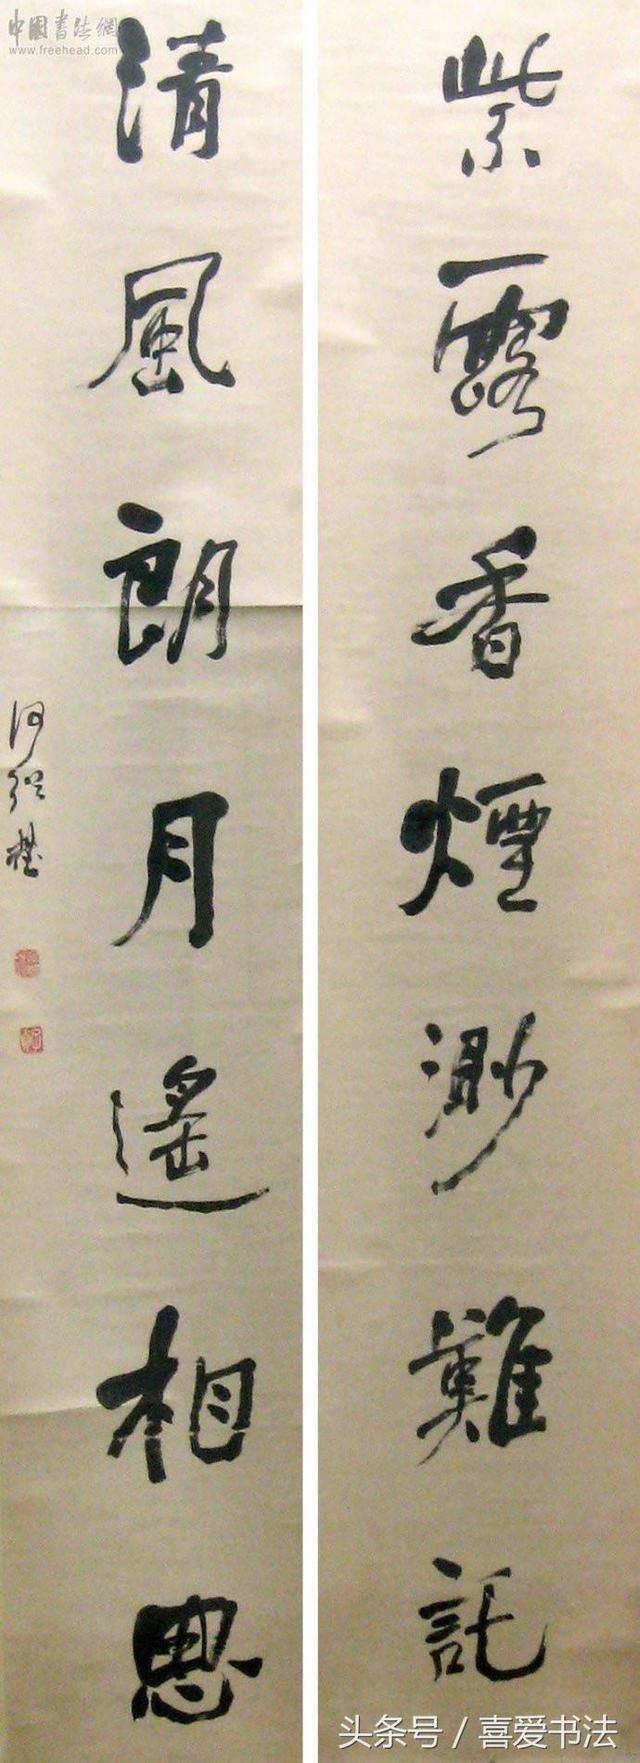 紫露香煙渺難託
清風朗月遙相思
何紹基
中國書法網
www.freehead.com
头条号 / 喜爱书法